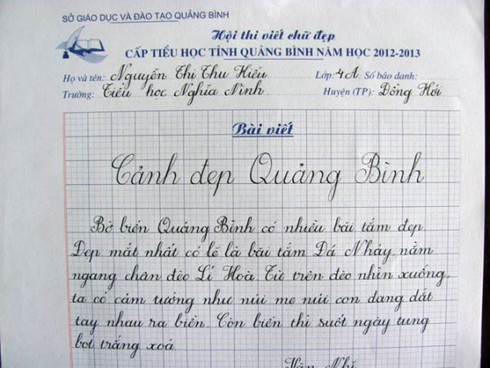 SỞ GIÁO DỤC VÀ ĐÀO TẠO QUẢNG BÌNH
Hội thi viết chữ đẹp
CẤP TIỂU HỌC TỈNH QUẢNG BÌNH NĂM HỌC 2012-2013
Họ và tên: Nguyễn Thị Thu Hiếu Lớp: 4A Số báo danh:
Trường: Tiểu học Nghĩa Ninh Huyện (TP): Đồng Hới
Bài viết
Cảnh đẹp Quảng Bình
Bờ biển Quảng Bình có nhiều bãi tắm đẹp.
Đẹp mắt nhất có lẽ là bãi tắm Đá Nhảy nằm
ngang chân đèo Lí Hoà. Từ trên đèo nhìn xuống,
ta có cảm tưởng như núi mẹ núi con đang dắt
tay nhau ra biển. Còn biển thì suốt ngày tung
bọt trắng xoá.
Văn Nhĩ